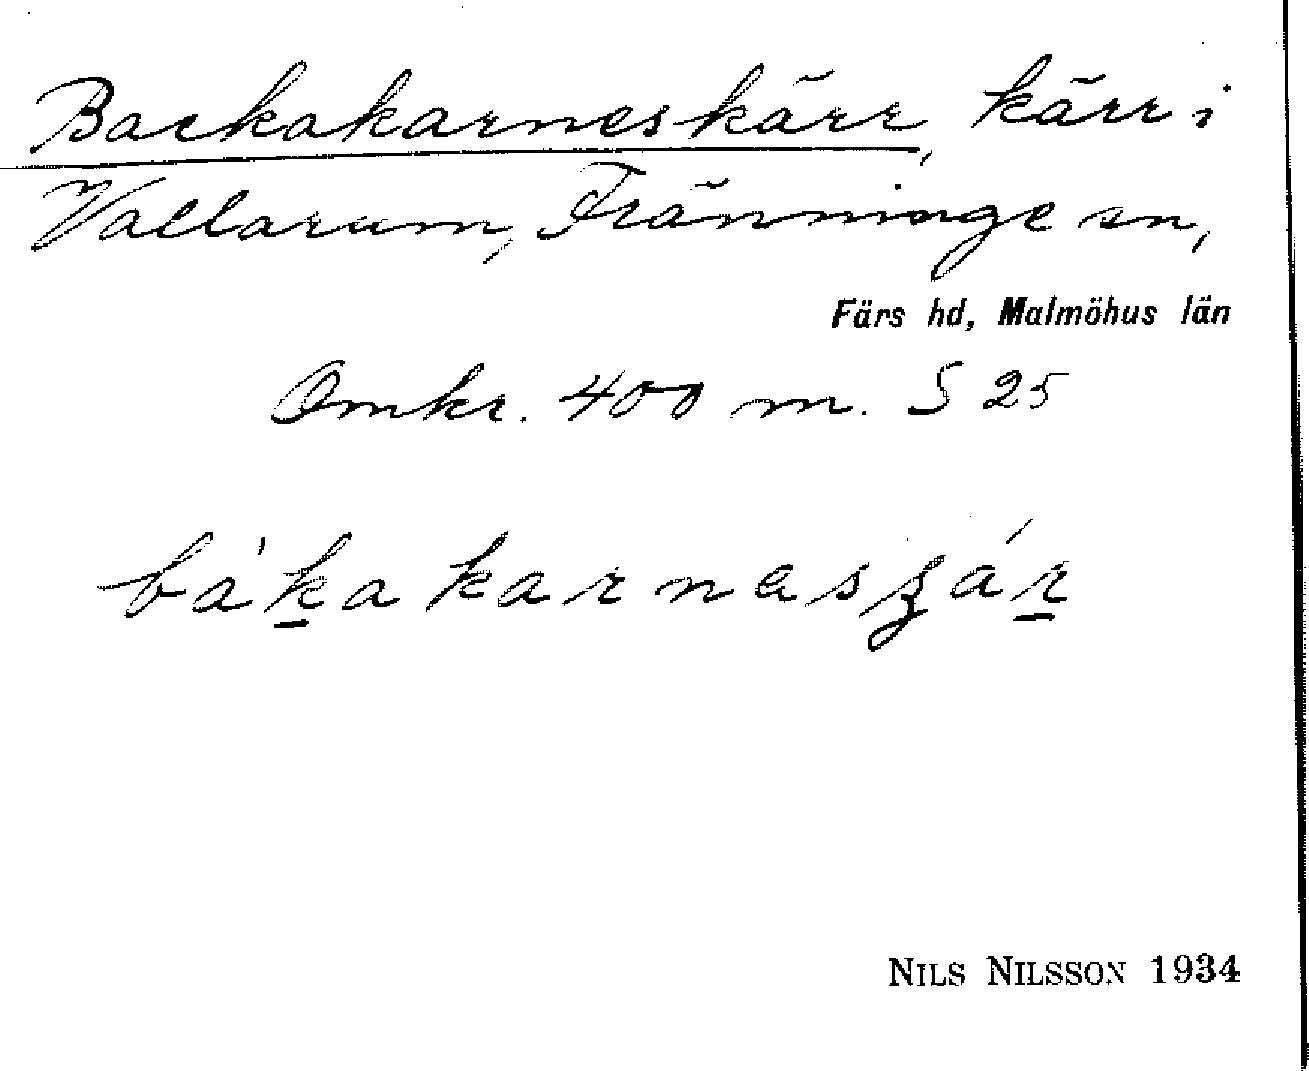 Backakarneskärr, kärr i
Vallarum, Fränninge sn,
Färs hd, Malmöhus län
Omkr. 400 m. S 25
bàka karnasʓár
NILS NILSSON 1934